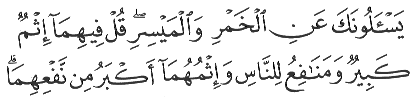 يَسْـَٔلُونَكَ عَنِ ٱلْخَمْرِ وَٱلْمَيْسِرِ ۖ قُلْ فِيهِمَآ إِثْمٌ
كَبِيرٌ وَمَنَـٰفِعُ لِلنَّاسِ وَإِثْمُهُمَآ أَكْبَرُ مِن نَّفْعِهِمَا ۗ